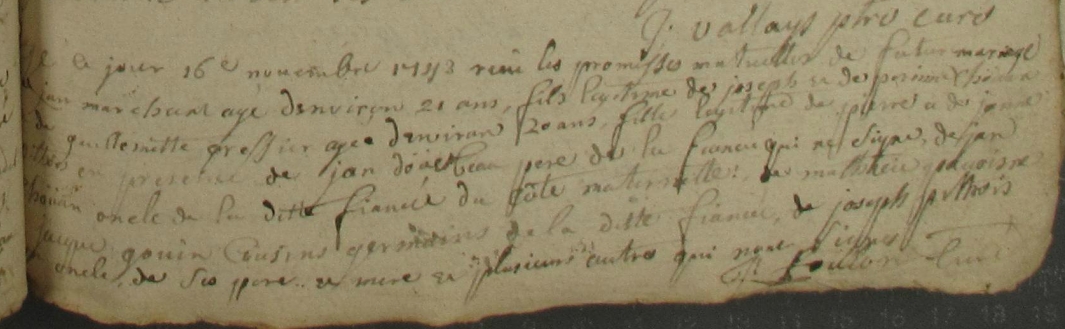 J. vallays ptre curé
Ce jour 16e novembre 1743 recu les promisses mutuelles de futur mariage
jan marchant agé denviron 21 ans, fils legitime de joseph et de perinne
de guillemitte gressier agee denviron 20 ans, fille legitime de pierre et de janne
en presence de jan pere de la fiancée qui ne signe, de jan
oncle de la ditte fiancée du côté maternelle, de mathieu
jacque gouin cousins germains de la ditte fiancée, de joseph
oncle, de ses pere et mere et plusieurs autres qui ne signes
curé